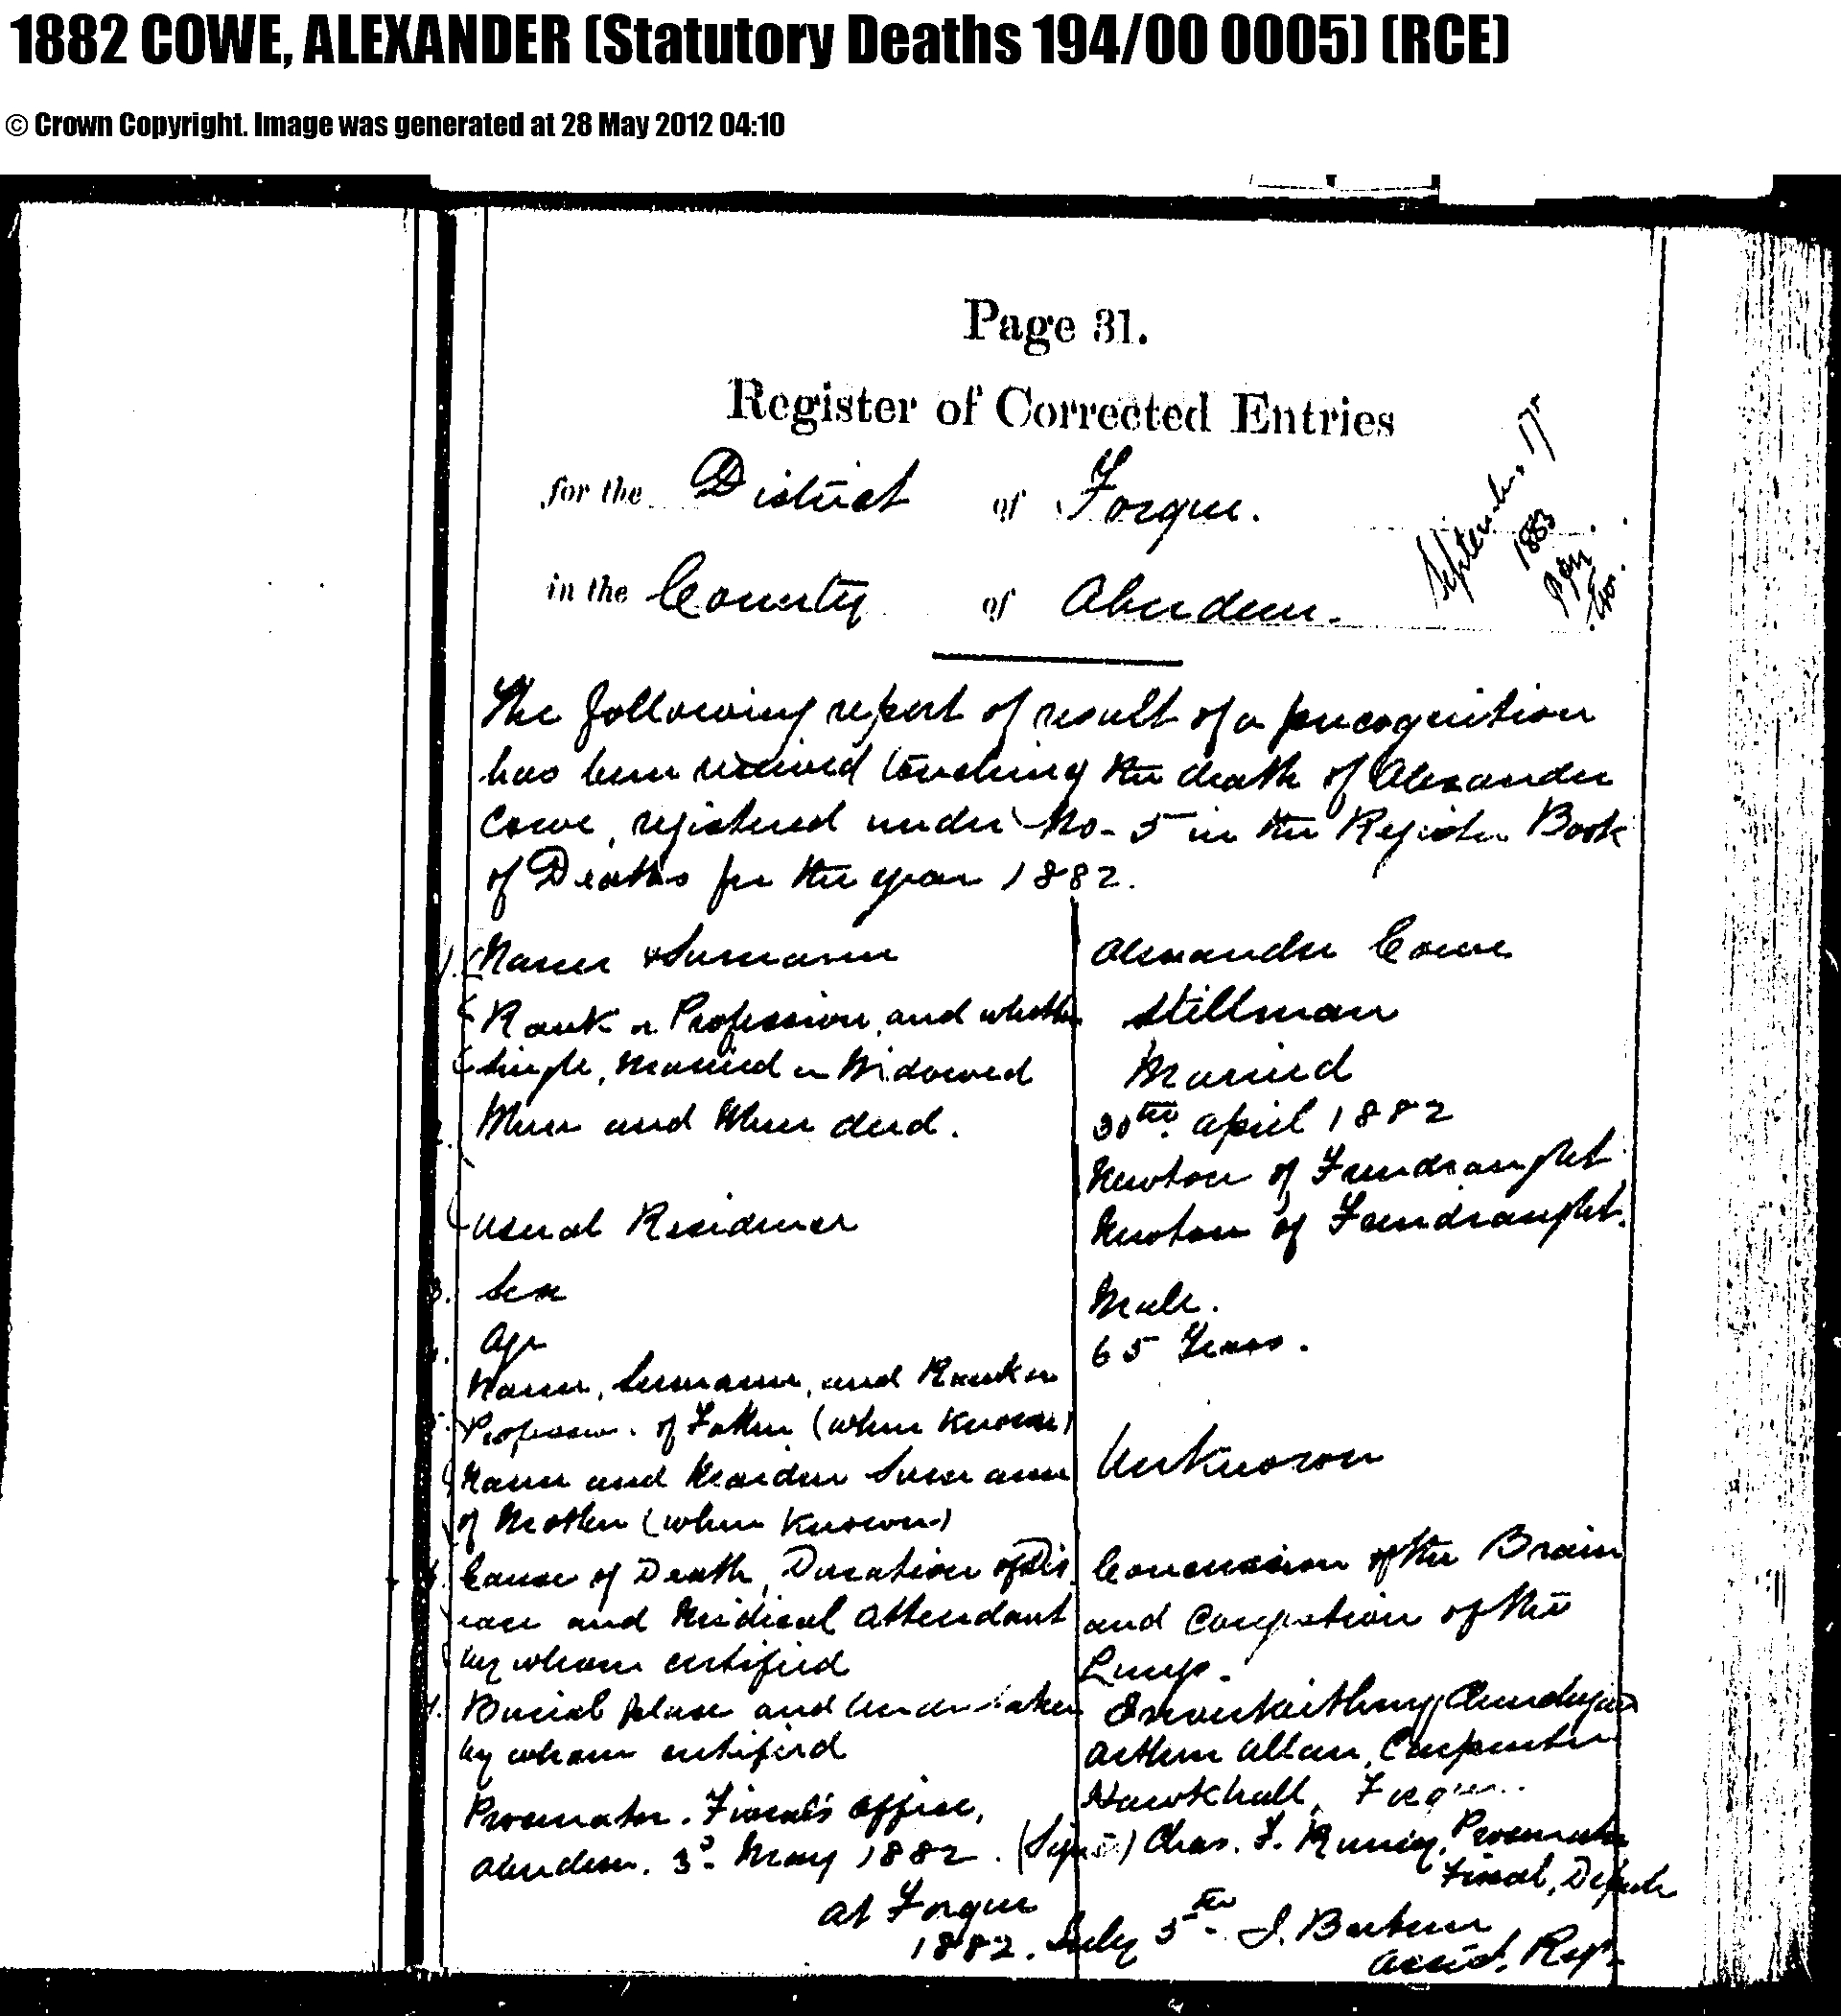 1882 COWE, ALEXANDER (Statutory Deaths 194/00 0005) (RCE)
© Crown Copyright. Image was generated at 28 May 2012 04:10
Page 31.
Register of Corrected Entries
for the District of Forgue.
in the County of Aberdeen.
September 17
1883
Exr.
The following report of result of a precognition
has been received touching the death of Alexander
Cowe, registered under No. 5 in the Register Book
of Deaths for the year 1882.
1. Name & Surname Alexander Cowe
Rank or Profession, and whether Stillman
Single, Married or Widowed Married
2. When and Where died. 30th April 1882
Newton of Frendraught
Usual Residence Newton of Frendraught.
3. Sex Male.
4. Age 65 Years.
Name, Surname, and Rank or
5. Profession of Father (when known)
Name and Maiden Surname Unknown
of Mother (when known)
6. Cause of Death, Duration of Dis Concussion of the Brain
ease and Medical Attendant and Congestion of the
by whom certified Lungs.
7. Burial place and Undertaker Inverkeithny Churchyard
by whom certified Arthur Allan, Carpenter
Hawkhall, Forgue.
Procurator. Fiscal's Office,
Aberdeen. 3d. May 1882. (Signed) Chas. F. Runcy, Procurator
Fiscal, Depute
At Forgue
1882. July 5th. J.
Assist. Regr.